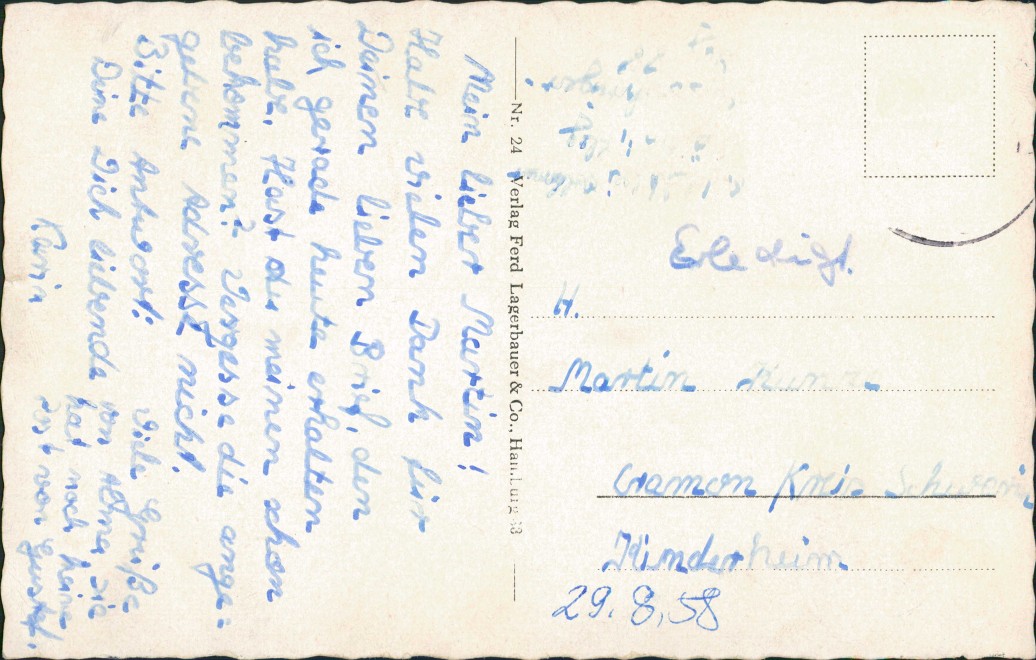 Mein lieber Martin!
Habe vielen Dank für
Deinen lieben Brief, den
ich gerade heute erhalten
habe. Hast du meinen schon
bekommen? Vergesse die ange-
gebene Adresse nicht!
Bitte Antwort! Viele Grüße
Dine Dich liebende von sie
hat noch keine
von Gustav.
Nr. 24 Verlag Ferd Lagerbauer & Co., Hamburg 33
Erledigt.
H.
Martin Kunze
Cramon Kreis Schwerin
Kinderheim
29.8.58